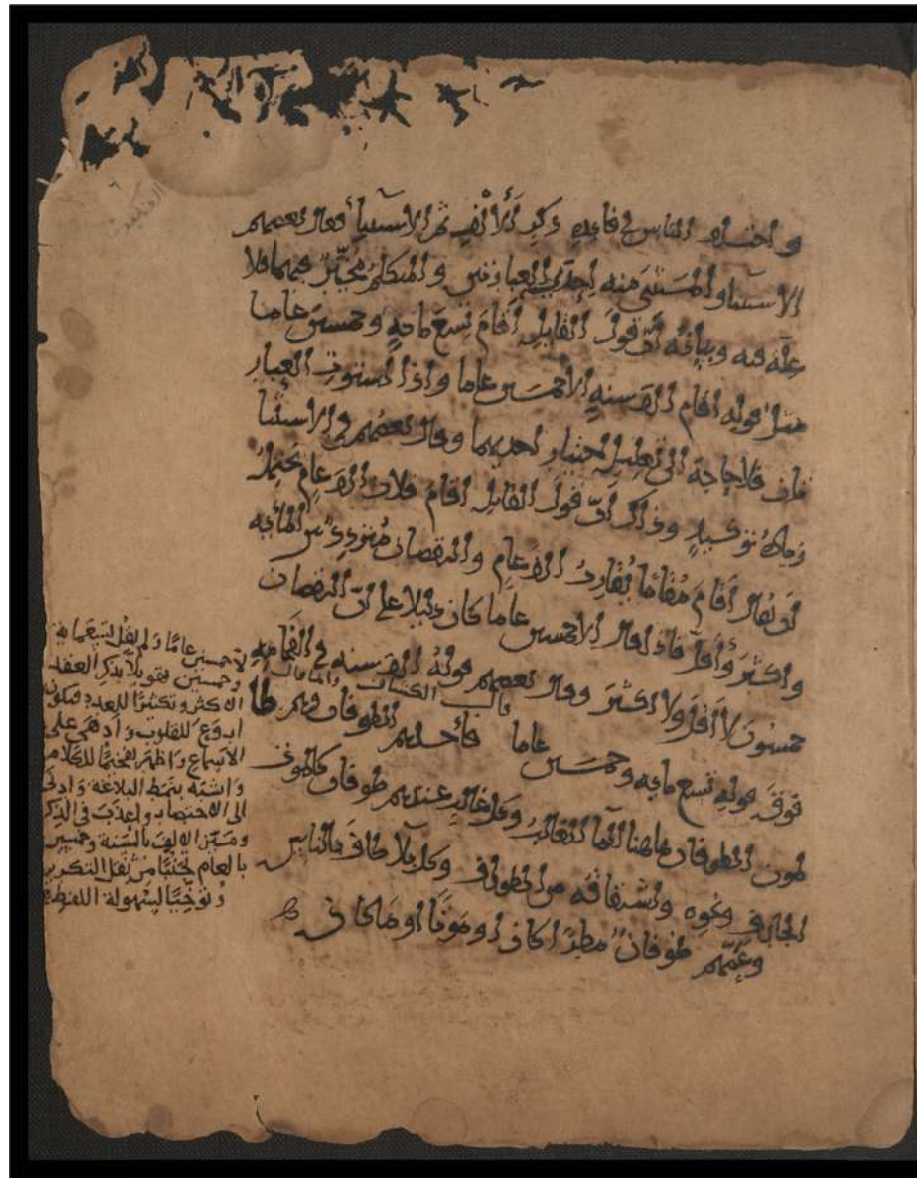 واختلف الناس في فائدة ذكر الألف ثم الاستثنا فقال بعضهم
الاستثنا والمستثنى منه إحدى العبارتين والمتكلم مخير بينهما فلا
علة فيه وبيانه أن قول القايل أقام تسع مايه وخمسين عاما
مثل قوله أقام ألف سنة إلا خمسين عاما وإذا استوت العبار
تان فلا حاجة إلى تعليل اختيار احديهما وقال بعضهم في الاستثنا
زيادة توكيد وذاك أن قول القايل أقام فلان ألف عام يحتمل
أن يقال أقام مقاما يقارب ألف عام والنقصان متردد بين المايه
وأكثر وأقل فإذا قال إلا خمسين عاما كان دليلا على أن النقصان
خمسون لا أقل ولا أكثر وقال بعضهم قوله ألف سنة في الفخامة
فوق قوله تسع مايه وخمسين عاما فأخذهم الطوفان وهم ظا
لمون الطوفان هاهنا الما الغالب وكل غالب عندهم طوفان كالموت
الجارف ونحوه واشتقاقه من الطواف وكل بلا طاف بالناس
وعمهم طوفان مطرا كان أو موتا أو ما كان
إلا خمسين عاما ولم يقل تسعماية
وخمسين فهو بلا بذكر العقد
الاكثر وتكثيرا للعدد فيكون
اروع للقلوب وادهى على
الاسماع واظهر تفخيما للكلام
واشبه بنمط البلاغة وادلى
الى الاختصار واعذب في الذكر
وميز الالف بالسنة وخمسين
بالعام تجنبا من ثقل التكرير
وتوخيا لسهولة اللفظ